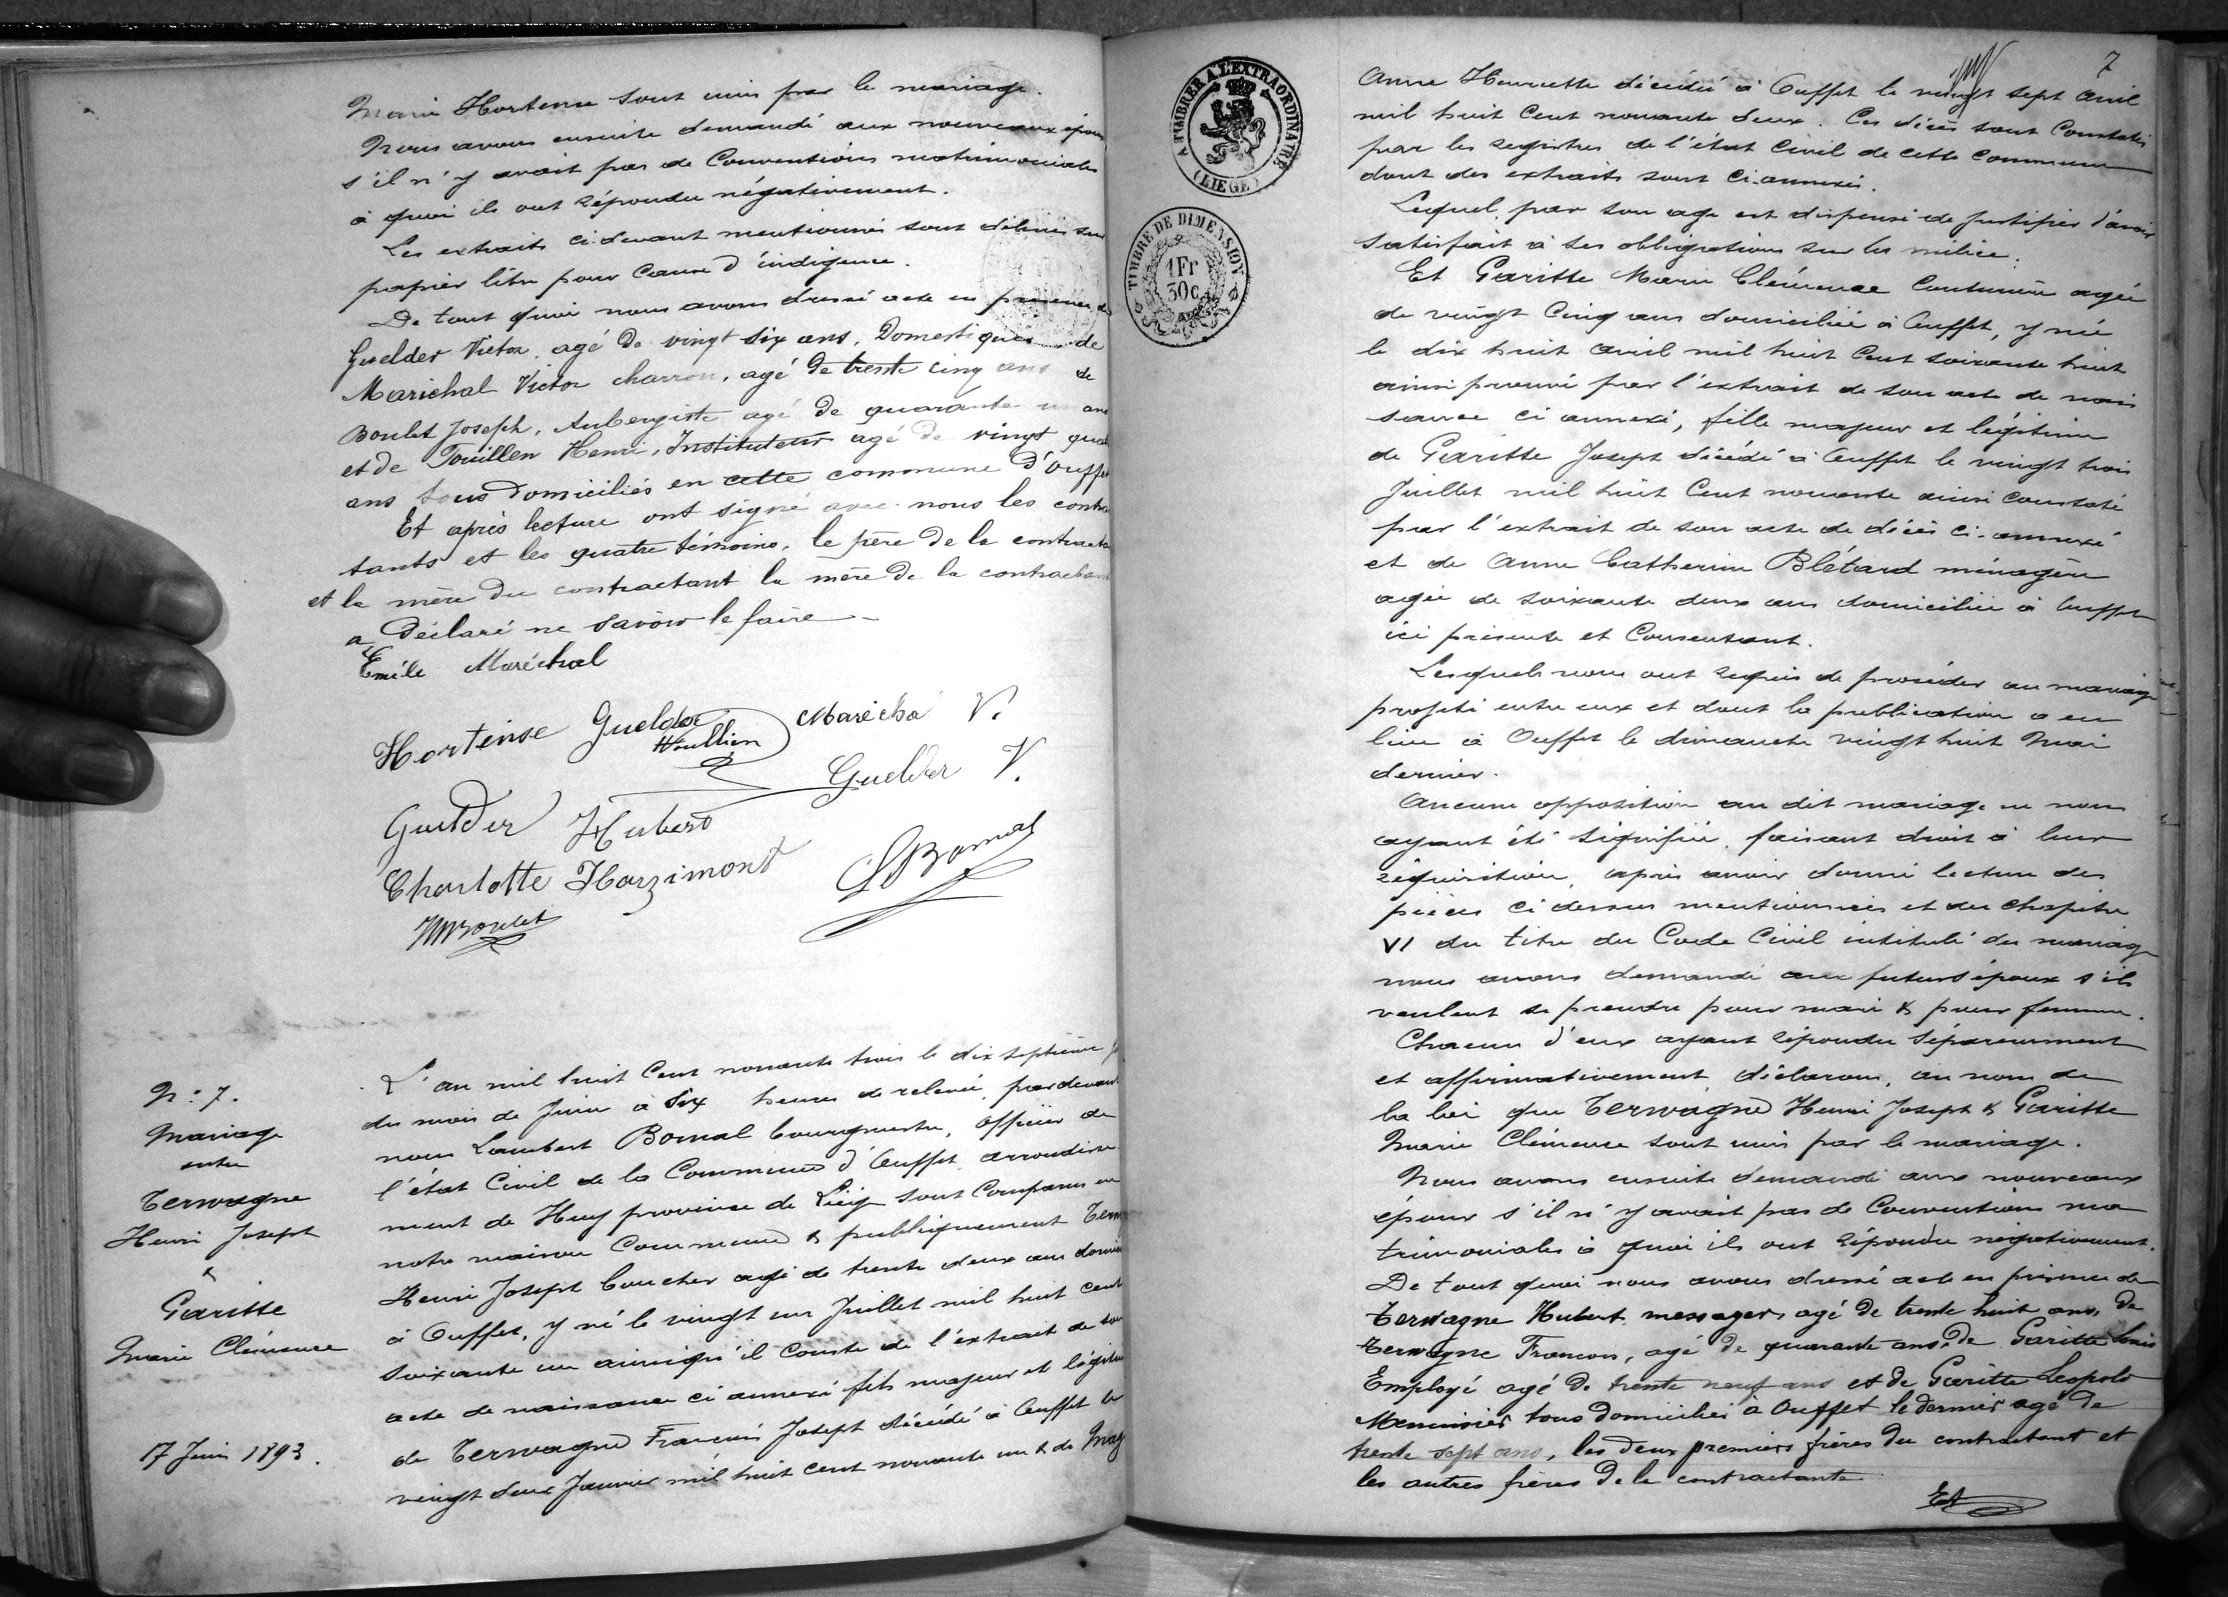 Marie Hortense sont unis par le mariage.
Nous avons ensuite demandé aux nouveaux époux
s'il n'y avait pas de Conventions matrimoniales
à quoi ils ont répondu négativement.
Les extraits ci-devant mentionnés sont délivrés sur
papier libre pour cause d'indigence.
De tout quoi nous avons dressé acte en présence de
Guelder Victor, agé de vingt six ans, Domestique de
Marichal Victor charron, agé de trente cinq ans de
Boulet Joseph, Aubergiste agé de quarante un ans
et de Touillen Henri, Instituteur agé de vingt quat
ans tous Domiciliés en cette commune d'Ouffet
Et après lecture ont signé avec nous les contrac
tants et les quatre témoins, le père de la contracta
et la mère du contractant la mère de la contractant
a Déclaré ne savoir le faire -
Emile Maréchal
Hortense Guelder Maréchal V.
Guelder V.
Guelder Hubert
Charlotte Harzimont LBomal
Boulet
N° 7.
Mariage
entre
Terwagne
Henri Joseph
&
Garitte
Marie Clémence
17 Juin 1893.
L'an mil huit Cent nonante trois le dix septième j
du mois de Juin à six heures de relevée, pardevant
nous Lambert Bomal bourgmestre, officier de
l'état Civil de la Commune d'Ouffet, arrondisse
ment de Huy province de Liége sont comparus en
notre maison Commune & publiquement Terw
Henri Joseph boucher agé de trente deux ans domici
à Ouffet, y né le vingt un Juillet mil huit cent
soixante un ainsi qu'il conste de l'extrait de son
acte de naissance ci annexé fils majeur et légitim
de Terwagne François Joseph décédé à Ouffet le
vingt deux Janvier mil huit cent nonante un & de Mag
7
A TIMBRER A L'EXTRAORDINAIRE
(LIEGE)
TIMBRE DE DIMENSION
1Fr
30c
Anne Henriette décédée à Ouffet le vingt sept avril
mil huit cent nonante deux. Ces décès sont constatés
par les registres de l'état civil de cette commune
dont des extraits sont ci-annexés.
Lequel, par son age est dispensé de justifier d'avoir
satisfait à ses obligations sur la milice.
Et Garitte Marie Clémence Couturière agée
de vingt cinq ans domiciliée à Ouffet, y née
le dix huit avril mil huit Cent soixante huit
ainsi prouvé par l'extrait de son acte de nais
sance ci annexé, fille majeure et légitime
de Garitte Joseph décédé à Ouffet le vingt trois
Juillet mil huit Cent nonante ainsi constaté
par l'extrait de son acte de décès ci-annexé
et de Anne Catherine Blétard ménagère
agée de soixante deux ans domiciliée à Ouffet
ici présente et Consentant.
Lesquels nous ont requis de procéder au mariage
projeté entre eux et dont la publication a eu
lieu à Ouffet le dimanche vingt huit Mai
dernier.
Aucune opposition au dit mariage ne nous
ayant été signifiée, faisant droit à leur
réquisition, après avoir donné lecture des
pièces ci dessus mentionnées et du chapitre
VI du titre du Code Civil intitulé du mariage
nous avons demandé aux futurs époux s'ils
veulent se prendre pour mari & pour femme.
Chacun d'eux ayant répondu séparément
et affirmativement, déclarons, au nom de
la loi que Terwagne Henri Joseph & Garitte
Marie Clémence sont unis par le mariage.
Nous avons ensuite demandé aux nouveaux
époux s'il n'y avait pas de Conventions ma
trimoniales à quoi ils ont répondu négativement.
De tout quoi nous avons dressé acte en présence de
Terwagne Hubert messager, agé de trente huit ans, de
Terwagne Francois, agé de quarante ans, de Garitte Louis
Employé agé de trente neuf ans et de Garitte Léopold
Menuisier tous domiciliés à Ouffet le dernier agé de
trente sept ans, les deux premiers frères du contractant et
les autres frères de la contractante
Et